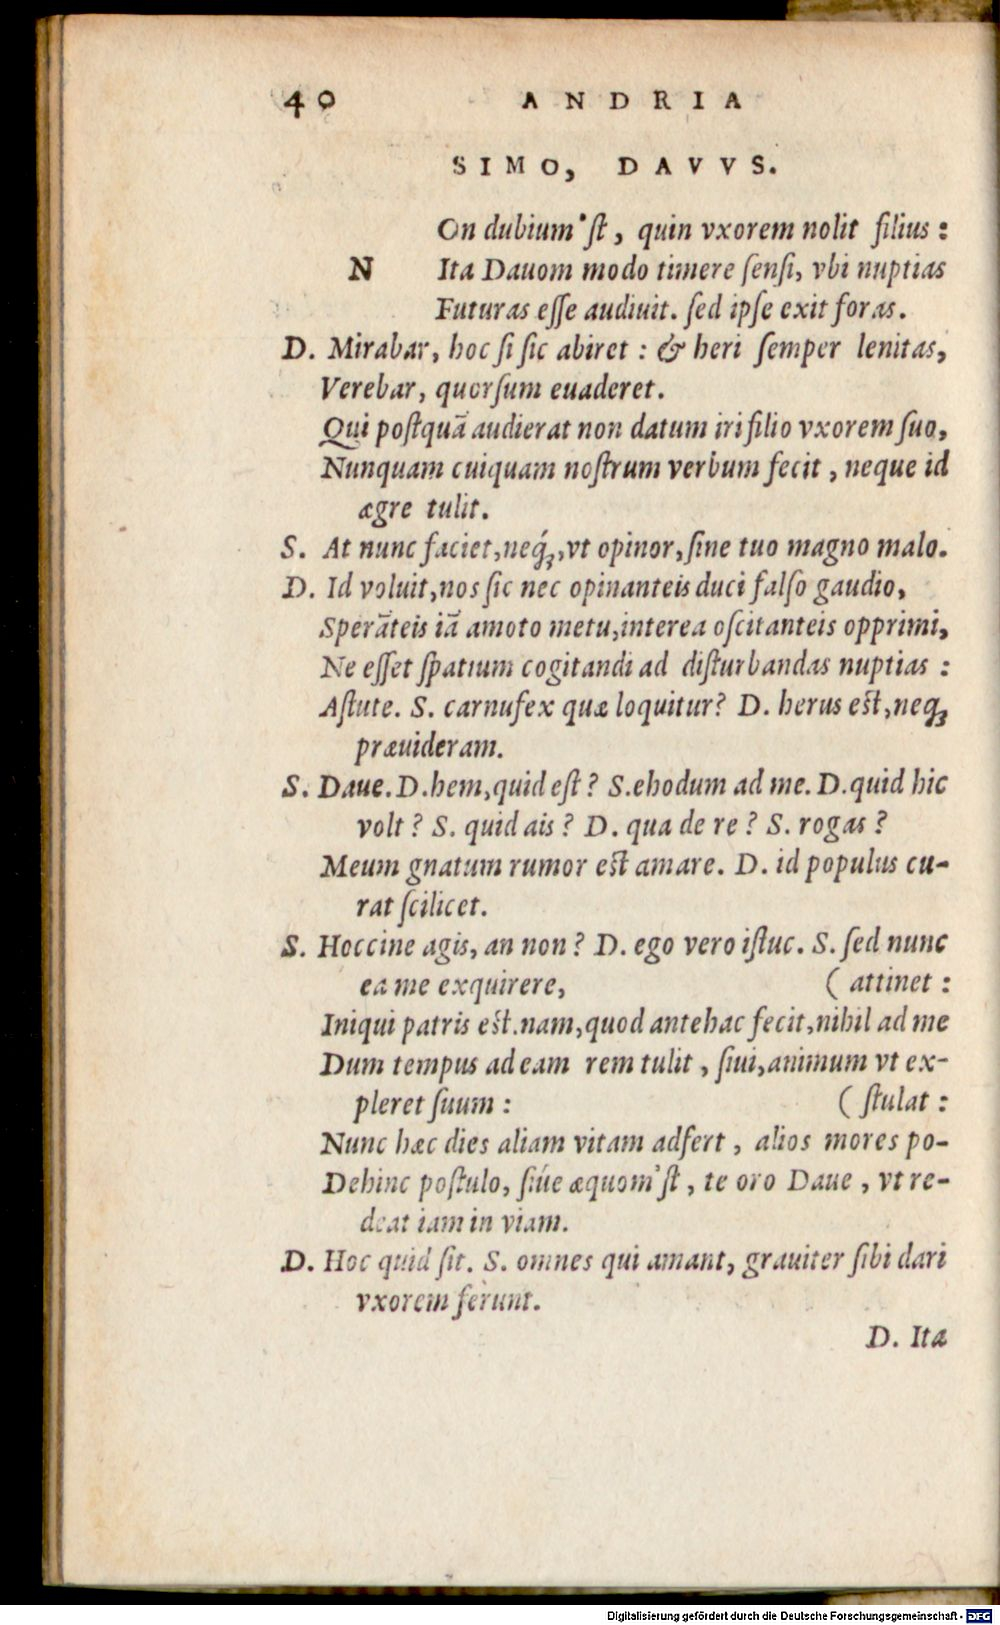 40 ANDRIA
SIMO, DAVVS.
On dubium'ſt, quin vxorem nolit filius:
N Ita Dauom modo timere ſenſi, vbi nuptias
Futuras eſſe audiuit. ſed ipſe exit foras.
D. Mirabar, hoc ſi ſic abiret: & heri ſemper lenitas,
Verebar, quorſum euaderet.
Qui poſtquā audierat non datum iri filio vxorem ſuo,
Nunquam cuiquam noſtrum verbum fecit, neque id
ægre tulit.
S. At nunc faciet, neq́ꝫ, vt opinor, ſine tuo magno malo.
D. Id voluit, nos ſic nec opinanteis duci falſo gaudio,
Sperāteis iā amoto metu, interea oſcitanteis opprimi,
Ne eſſet ſpatium cogitandi ad diſturbandas nuptias:
Aſtute. S. carnufex quæ loquitur? D. herus eſt, neqꝫ
præuideram.
S. Daue. D. hem, quid eſt? S. ehodum ad me. D. quid hic
volt? S. quid ais? D. qua de re? S. rogas?
Meum gnatum rumor eſt amare. D. id populus cu-
rat ſcilicet.
S. Hoccine agis, an non? D. ego vero iſtuc. S. ſed nunc
ea me exquirere, (attinet:
Iniqui patris eſt. nam, quod antehac fecit, nihil ad me
Dum tempus ad eam rem tulit, ſiui, animum vt ex-
pleret ſuum: (ſtulat:
Nunc hæc dies aliam vitam adfert, alios mores po-
Dehinc poſtulo, ſiúe æquom'ſt, te oro Daue, vt re-
deat iam in viam.
D. Hoc quid ſit. S. omnes qui amant, grauiter ſibi dari
vxorem ferunt.
D. Ita
Digitalisierung gefördert durch die Deutsche Forschungsgemeinschaft - DFG